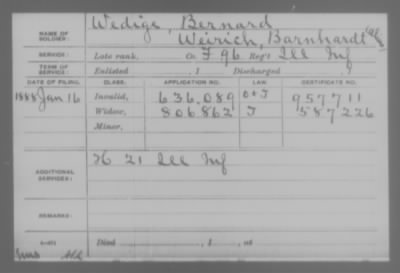 NAME OF SOLDIER: Wedige, Bernard
Weirich, Barnhardt (als)
SERVICE: Late rank, Co. F 96 Reg't Ill Inf
TERM OF SERVICE: Enlisted , 1 Discharged , 1
DATE OF FILING. CLASS. APPLICATION NO. LAW. CERTIFICATE NO.
1888 Jan 16 Invalid, 636,089 957711
Widow, 806862 587226
Minor,
ADDITIONAL SERVICES: H 21 Ill Inf
REMARKS:
Died , 1 , at